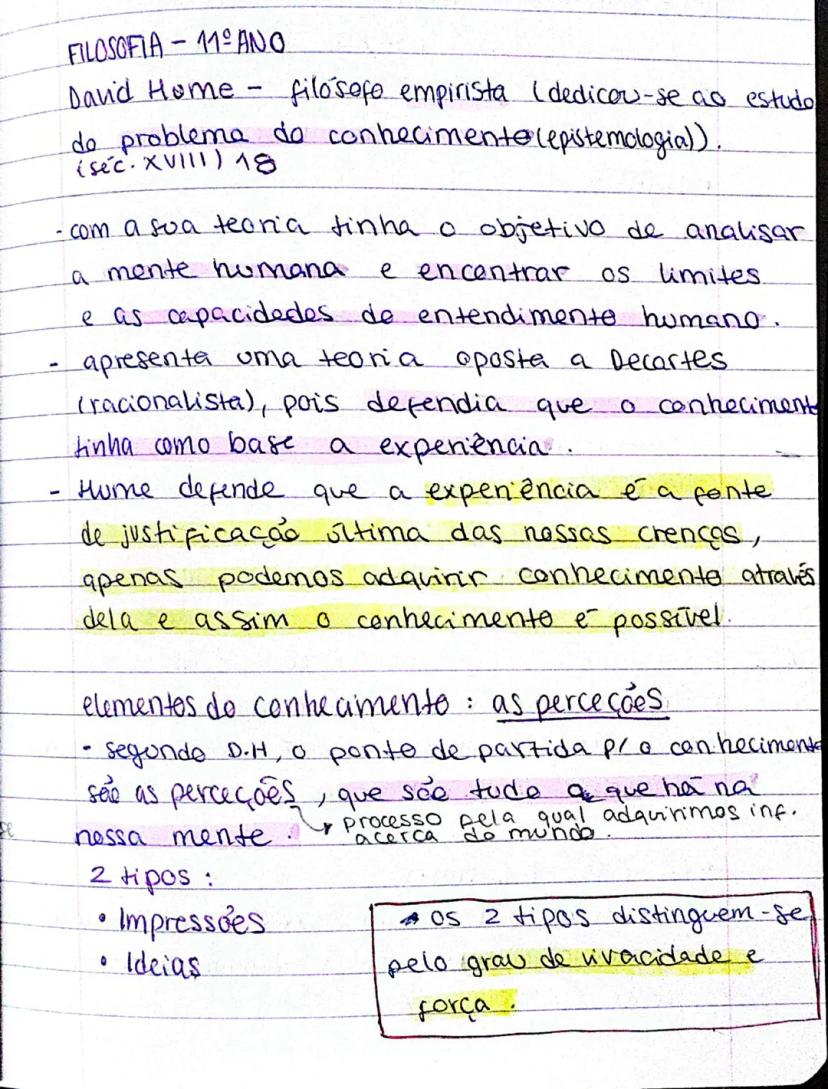 FILOSOFIA - 11º ANO
David Hume - filósofo empirista (dedicou-se ao estudo
do problema do conhecimento (epistemologia)).
(séc. XVIII) 18
- com a sua teoria tinha o objetivo de analisar
a mente humana e encontrar os limites
e as capacidades do entendimento humano.
- apresenta uma teoria oposta a Decartes
(racionalista), pois defendia que o conheciment
tinha como base a experiência.
- Hume defende que a experiência é a fonte
de justificação última das nossas crenças,
apenas podemos adquirir conhecimento através
dela e assim o conhecimento é possível.
elementos do conhecimento : as perceções
- segundo D.H, o ponto de partida p/ o conhecimento
são as perceções, que são tudo o que há na
nossa mente.
processo pela qual adquirimos inf.
acerca do mundo.
2 tipos :
• Impressões
• Ideias
Os 2 tipos distinguem-se
pelo grau de vivacidade e
força.